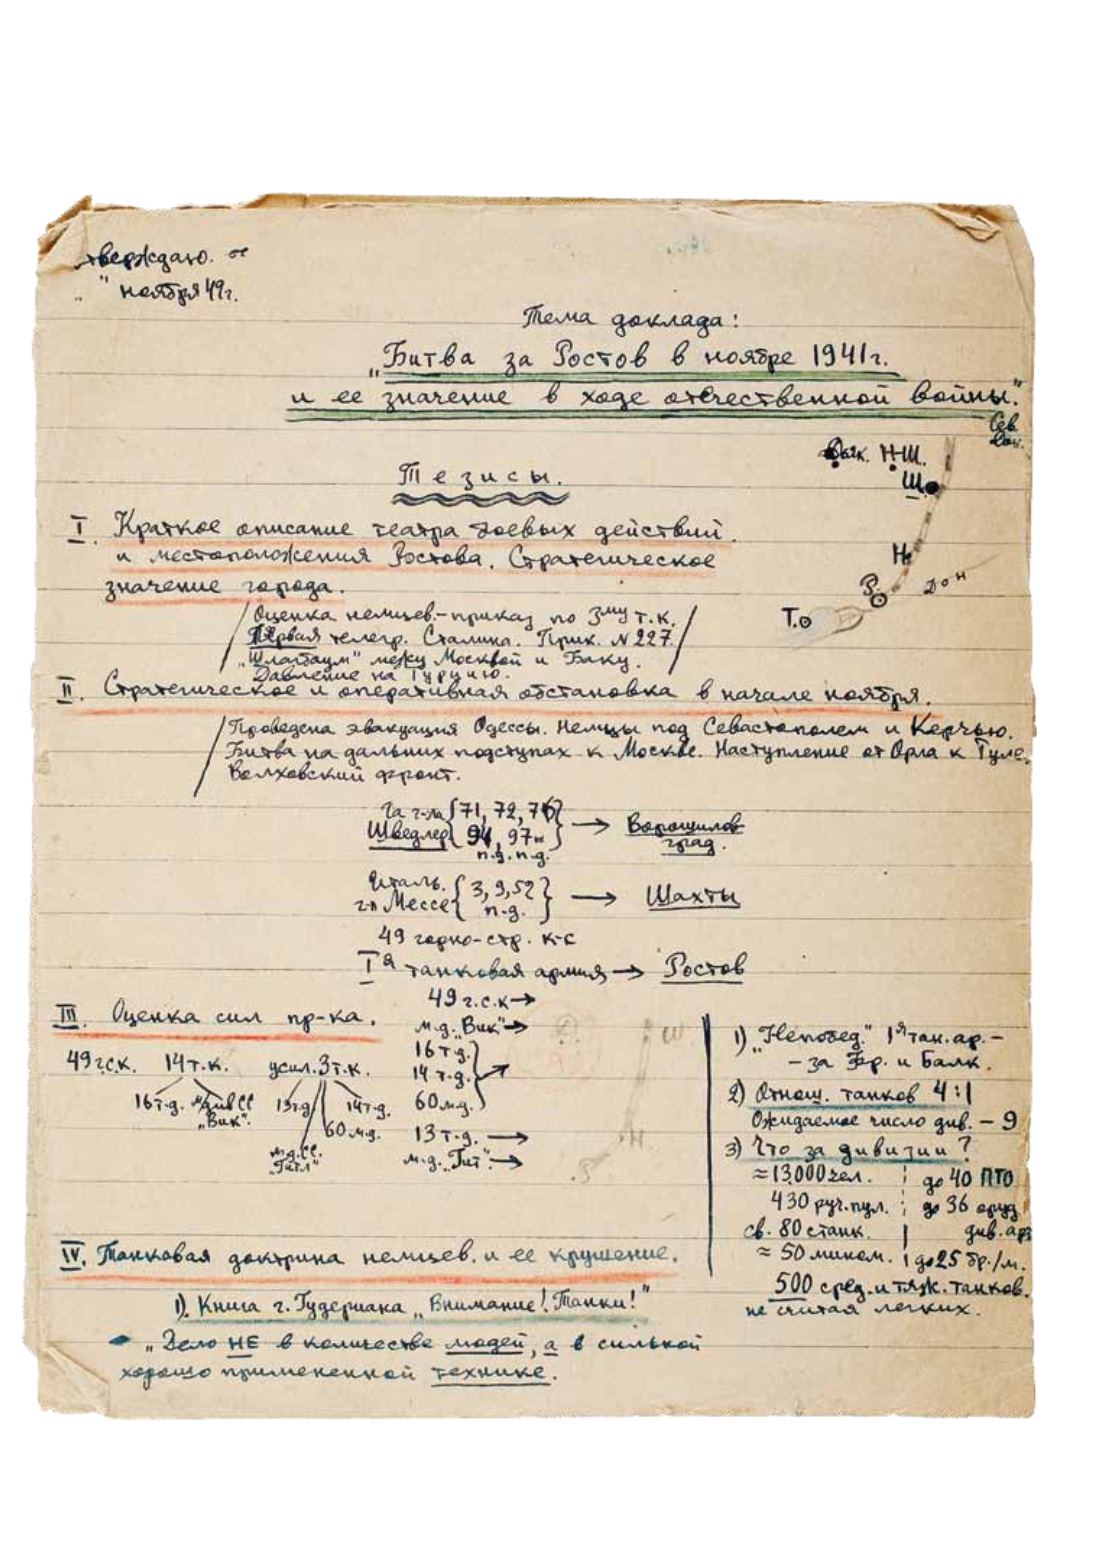 тверждаю.
" " ноября 49г.
Тема доклада:
„Битва за Ростов в ноябре 1941г.
и ее значение в ходе отечественной войны."
Сев.
Н-Ш.
Ш.
Н.
Р.
Дон
Т.
Тезисы.
I. Краткое описание театра боевых действий
и местоположения Ростова. Стратегическое
значение города.
Оценка немцев-приказ по 3му т.к.
Первая телегр. Сталина. Прик. N 227.
„Шлагбаум" между Москвой и Баку.
Давление на Турцию.
II. Стратегическое и оперативная обстановка в начале ноября.
Проведена эвакуация Одессы. Немцы под Севастополем и Керчью.
Битва на дальних подступах к Москве. Наступление от Орла к Туле.
Волховский фронт.
Гр. г-ла {71, 72, 76}
Шведлер {94, 97 п.д. п.д.} → Ворошиловград.
Италь. г-л Мессе {3, 9, 52 п.д.} → Шахты
49 горно-стр. к-с
Iя танковая армия → Ростов
III. Оценка сил пр-ка.
49 г.с.к →
м.д. „Вик" →
16 т.д.
14 т.д.
60 м.д.
13 т.д. →
м.д. „Гит." →
49 г.с.к. 14 т.к. усил. 3 т.к.
16 т.д. м.див СС „Вик". 13 т.д. 14 т.д.
60 м.д.
м.д. СС. „Гитл"
1) „Непобед." 1я тан. ар. –
– за Фр. и Балк.
2) Отнош. танков 4:1
Ожидаемое число див. – 9
3) Что за дивизии?
≈ 13.000 чел. до 40 ПТО
430 руч. пул. до 36 оруд.
св. 80 станк. див. ар
≈ 50 мином. до 25 бр./м.
500 сред. и тяж. танков.
не считая легких.
IV. Танковая доктрина немцев. и ее крушение.
1). Книга г. Гудериана „Внимание! Танки!"
– „Дело НЕ в количестве людей, а в сильной
хорошо примененной технике.